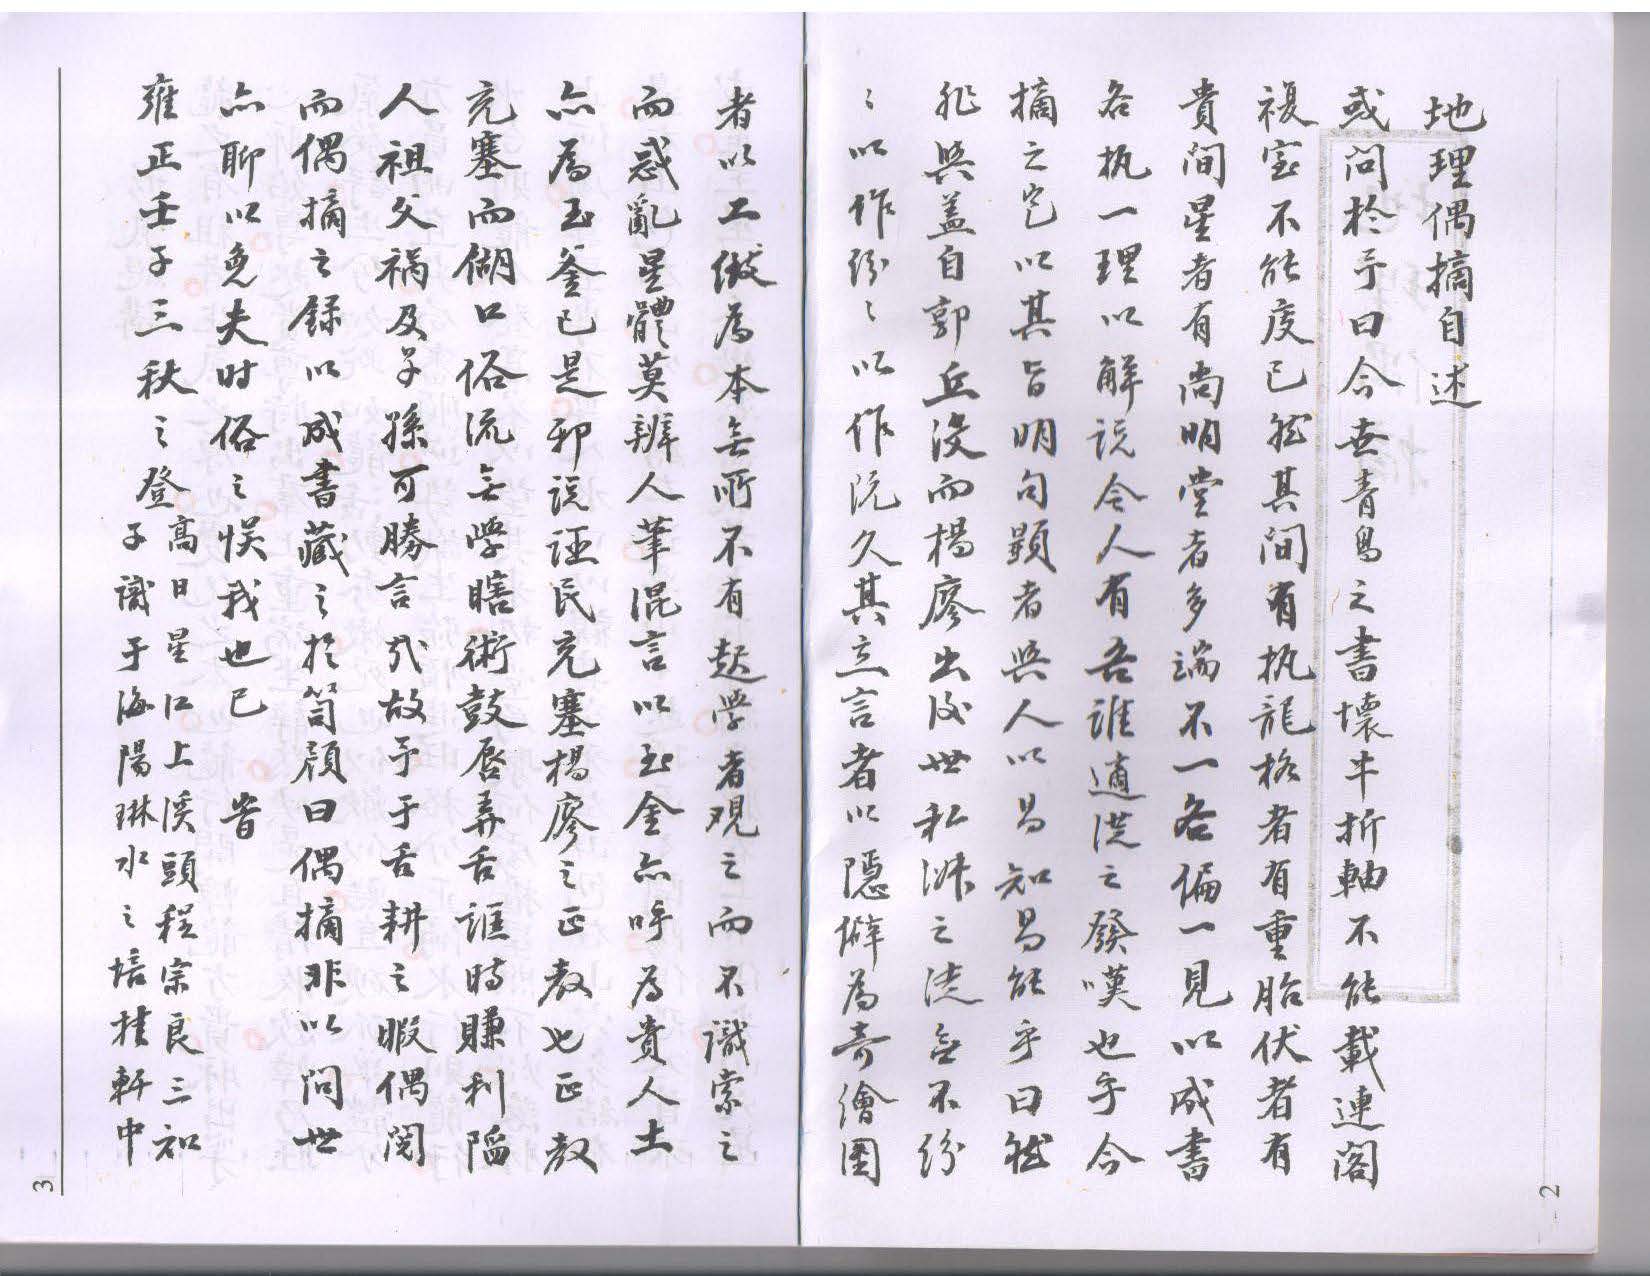 地理偶摘自述
或問於予曰今世青烏之書壞牛折軸不能載連閣
複室不能度已然其間有执龍格者有重胎伏者有
貴間星者有尚明堂者多端不一各偏一見以成書
各执一理以解说令人有吾誰適從之發嘆也乎今
摘之完以其旨明句顕者與人以易知易能乎曰然
非與盖自郭丘没而楊廖出後世私淑之徒無不纷
〻以作纷〻以作阮久其立言者以隱僻為奇繪圖
者以工做為本無所不有起学者观之而不識索之
而惑亂星體莫辨人筆混言以玉金亦呼為貴人土
亦為玉釜已是邪说诬民充塞楊廖之正教也正教
充塞而餬口俗流無學瞎術鼓唇弄舌誑時賺利陷
人祖父祸及子孫可勝言哉故予于舌耕之暇偶閱
而偶摘之錄以成書藏之於笥顔曰偶摘非以問世
亦聊以免夫时俗之悞我也已 岢
雍正壬子三秋之登高日星江上溪頭程宗良三和
子識于海陽琳水之培桂軒中
2
3